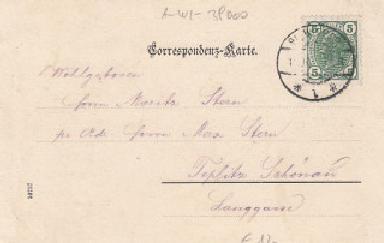 A-W1-3P000
Correspondenz-Karte.
5 5
5 5
Wohlgeboren
Herrn Moritz Stern
per Adr. Herrn Max Stern
Teplitz Schönau
Langgasse